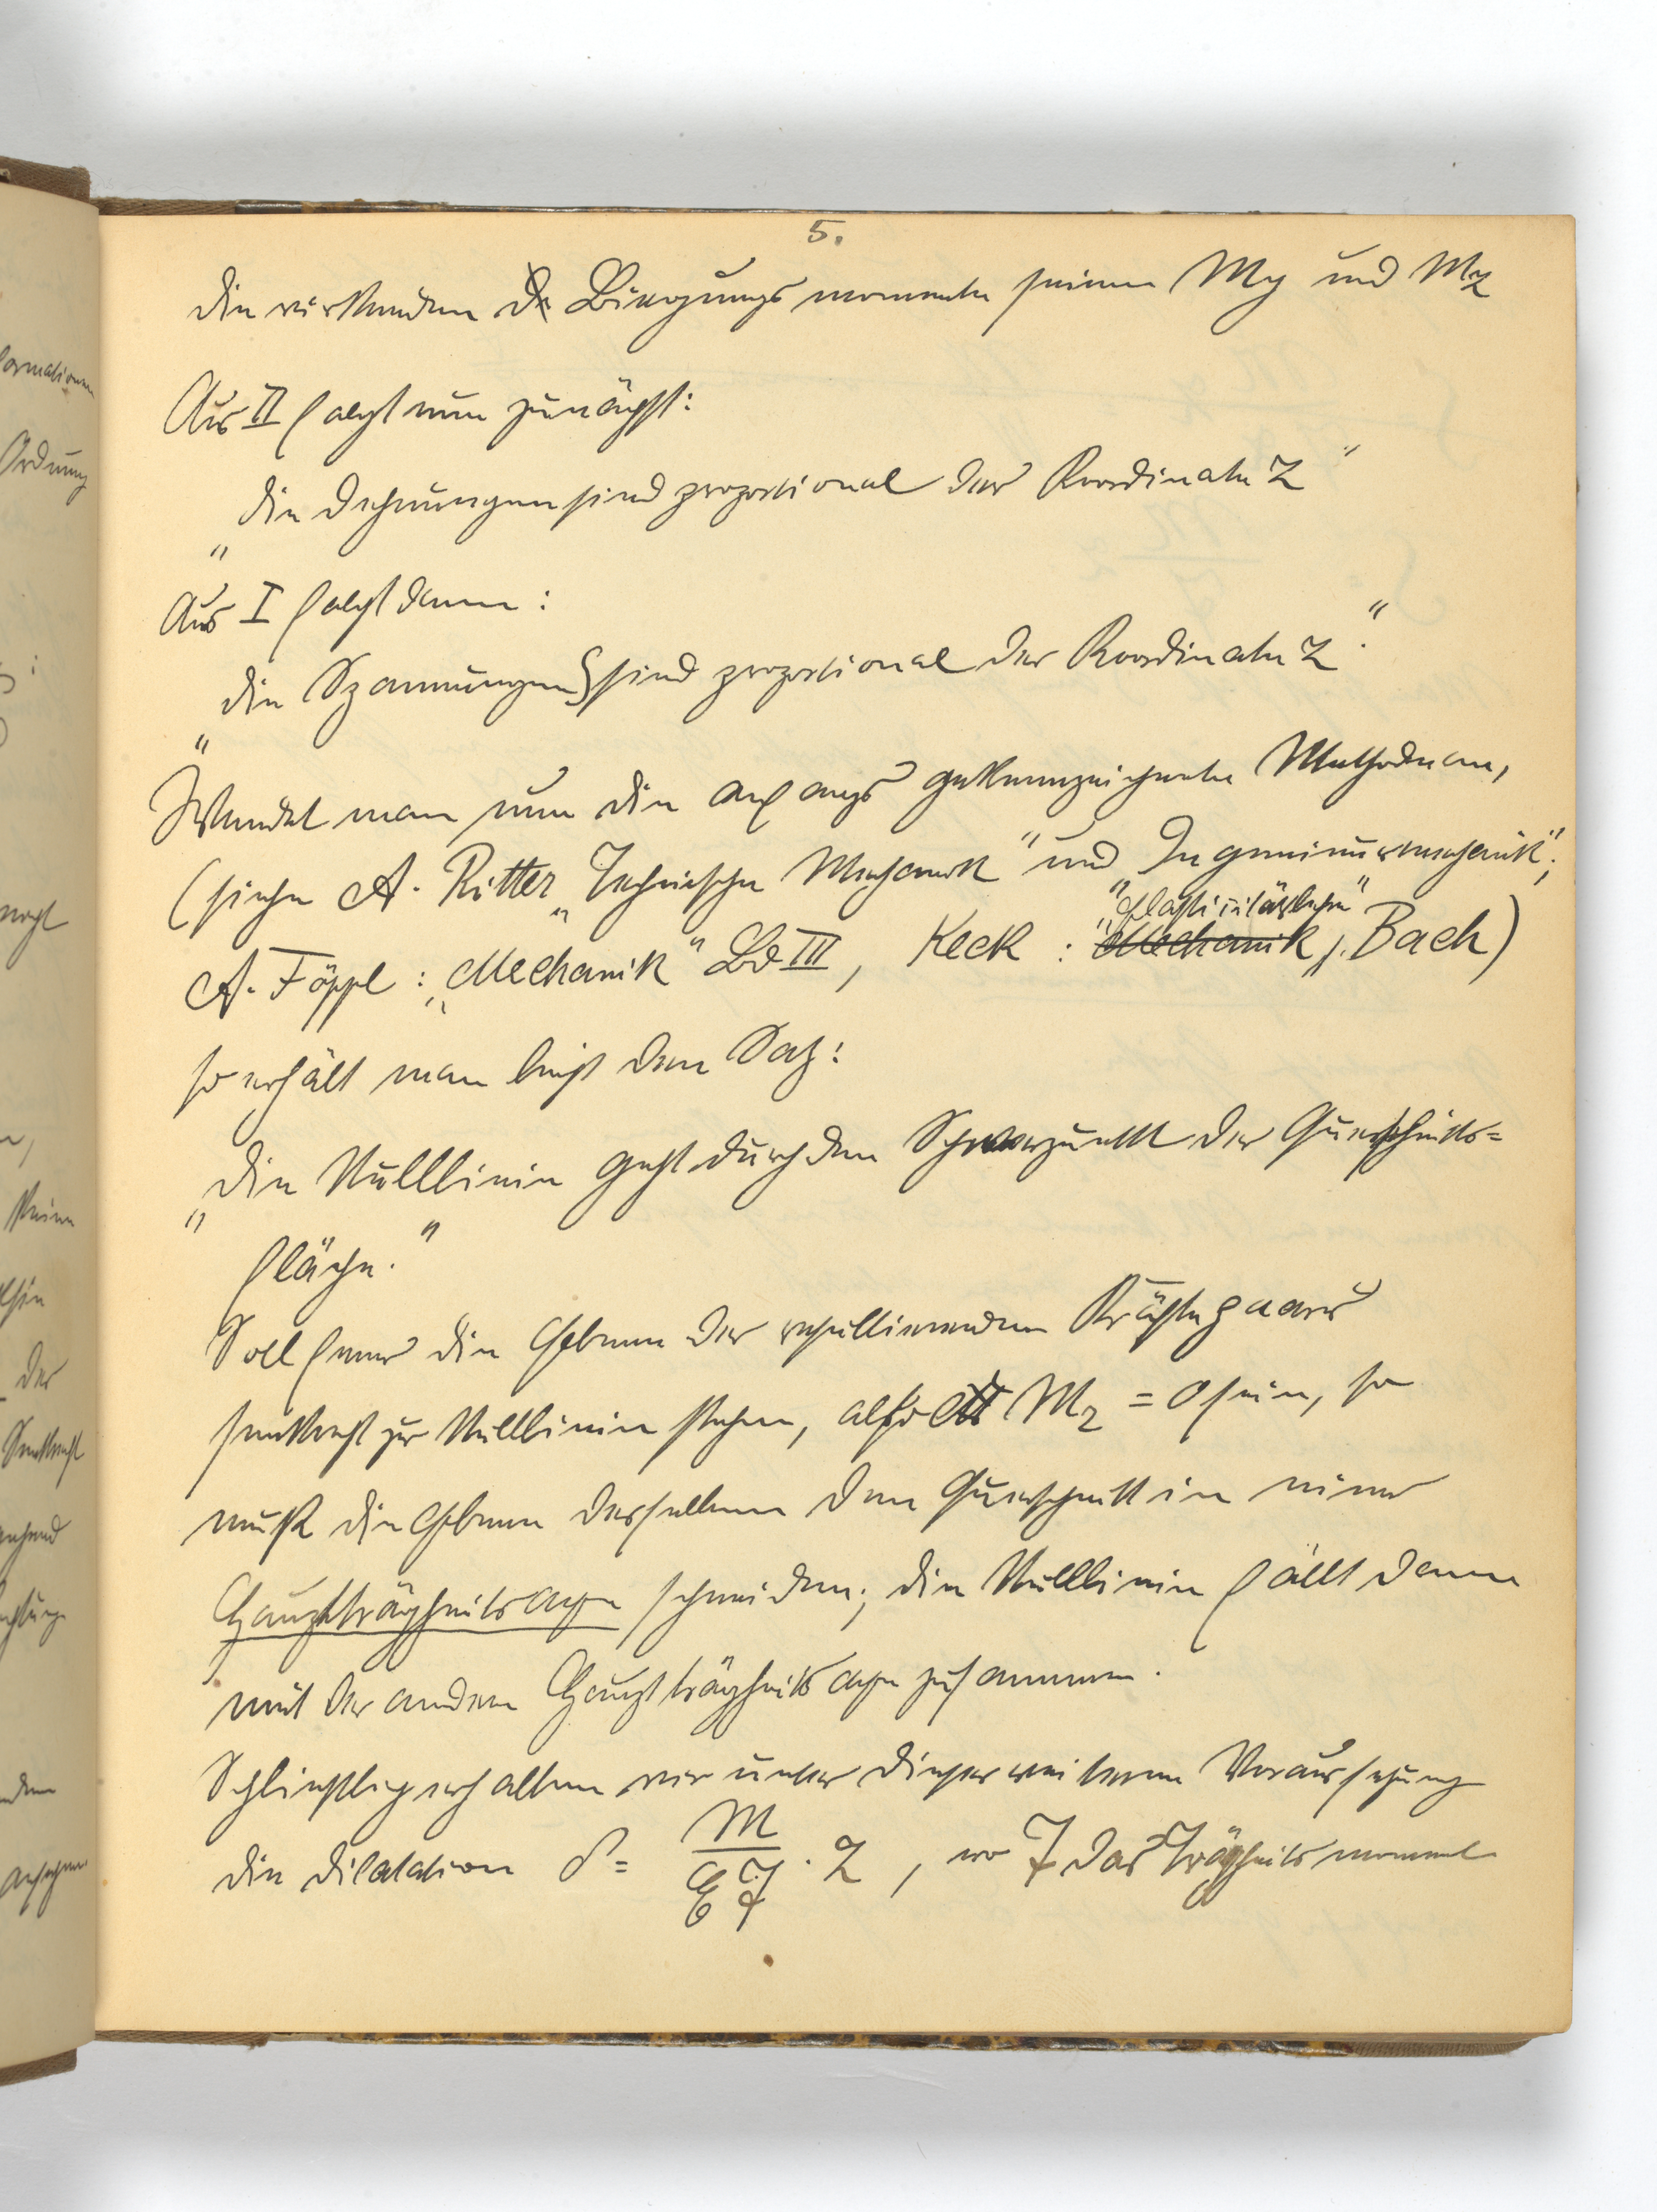 5.
die wirkenden Biegungsmomente seien My und Mz
Aus II folgt nun zunächst:
„die Dehnungen sind proportional der Koordinate z"
Aus I folgt dann:
„die Spannungen S sind proportional der Koordinate z."
Wendet man nun die anfangs gekennzeichnete Methode an,
(siehe A. Ritter „Technische Mechanik" und Ingenieurmechanik";
A. Föppl: „Mechanik" Bd III, Keck: "Elasticitätslehre" Mechanik, Bach)
so erhält man leicht den Satz:
„die Nulllinie geht durch den Schwerpunkt der Querschnitts=
fläche."
Soll ferner die Ebene des resultierenden Kräftepaares
senkrecht zur Nulllinie stehen, also Mz = 0 sein, so
muß die Ebene desselben den Querschnitt in einer
Hauptträgheitsaxe schneiden; die Nulllinie fällt dann
mit der andern Hauptträgheitsaxe zusammen.
Schließlich erhalten wir unter dieser weiteren Voraussetzung
die Dilatation δ = M/EJ · z, wo J das Trägheitsmoment
formationen
Ordnung
keine
der
Senkrecht